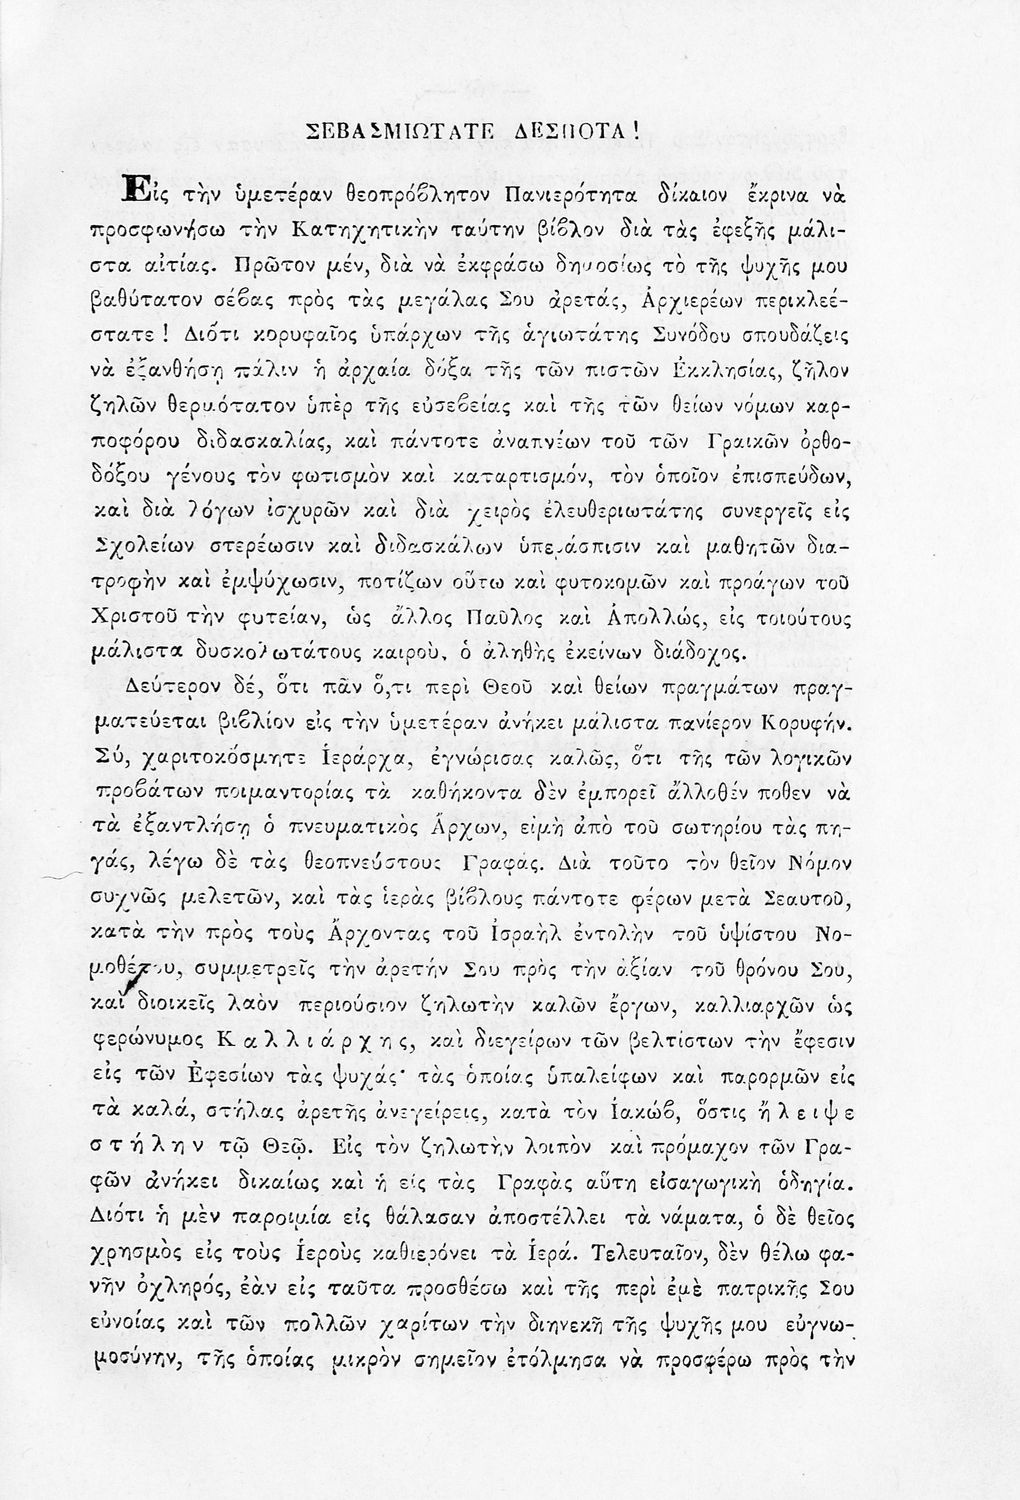 ΣΕΒΑΣΜΙΩΤΑΤΕ ΔΕΣΠΟΤΑ!
Εἰς τὴν ὑμετέραν θεοπρόβλητον Πανιερότητα δίκαιον ἔκρινα νὰ
προσφωνήσω τὴν Κατηχητικὴν ταύτην βίβλον διὰ τὰς ἐφεξῆς μάλι-
στα αἰτίας. Πρῶτον μέν, διὰ νὰ ἐκφράσω δημοσίως τὸ τῆς ψυχῆς μου
βαθύτατον σέβας πρὸς τὰς μεγάλας Σου ἀρετάς, Ἀρχιερέων περικλεέ-
στατε! Διότι κορυφαῖος ὑπάρχων τῆς ἁγιωτάτης Συνόδου σπουδάζεις
νὰ ἐξανθήσῃ πάλιν ἡ ἀρχαία δόξα τῆς τῶν πιστῶν Ἐκκλησίας, ζῆλον
ζηλῶν θερμότατον ὑπὲρ τῆς εὐσεβείας καὶ τῆς τῶν θείων νόμων καρ-
ποφόρου διδασκαλίας, καὶ πάντοτε ἀναπνέων τοῦ τῶν Γραικῶν ὀρθο-
δόξου γένους τὸν φωτισμὸν καὶ καταρτισμόν, τὸν ὁποῖον ἐπισπεύδων,
καὶ διὰ λόγων ἰσχυρῶν καὶ διὰ χειρὸς ἐλευθεριωτάτης συνεργεῖς εἰς
Σχολείων στερέωσιν καὶ διδασκάλων ὑπεράσπισιν καὶ μαθητῶν δια-
τροφὴν καὶ ἐμψύχωσιν, ποτίζων οὕτω καὶ φυτοκομῶν καὶ προάγων τοῦ
Χριστοῦ τὴν φυτείαν, ὡς ἄλλος Παῦλος καὶ Ἀπολλώς, εἰς τοιούτους
μάλιστα δυσκολωτάτους καιρού, ὁ ἀληθὴς ἐκείνων διάδοχος.
Δεύτερον δέ, ὅτι πᾶν ὅ,τι περὶ Θεοῦ καὶ θείων πραγμάτων πραγ-
ματεύεται βιβλίον εἰς τὴν ὑμετέραν ἀνήκει μάλιστα πανίερον Κορυφήν.
Σύ, χαριτοκόσμητε Ἱεράρχα, ἐγνώρισας καλῶς, ὅτι τῆς τῶν λογικῶν
προβάτων ποιμαντορίας τὰ καθήκοντα δὲν ἐμπορεῖ ἄλλοθέν ποθεν νὰ
τὰ ἐξαντλήσῃ ὁ πνευματικὸς Ἄρχων, εἰμὴ ἀπὸ τοῦ σωτηρίου τὰς πη-
γάς, λέγω δὲ τὰς θεοπνεύστους Γραφάς. Διὰ τοῦτο τὸν θεῖον Νόμον
συχνῶς μελετῶν, καὶ τὰς ἱερὰς βίβλους πάντοτε φέρων μετὰ Σεαυτοῦ,
κατὰ τὴν πρὸς τοὺς Ἄρχοντας τοῦ Ἰσραὴλ ἐντολὴν τοῦ ὑψίστου Νο-
μοθέτου, συμμετρεῖς τὴν ἀρετήν Σου πρὸς τὴν ἀξίαν τοῦ θρόνου Σου,
καὶ διοικεῖς λαὸν περιούσιον ζηλωτὴν καλῶν ἔργων, καλλιαρχῶν ὡς
φερώνυμος Καλλιάρχης, καὶ διεγείρων τῶν βελτίστων τὴν ἔφεσιν
εἰς τῶν Ἐφεσίων τὰς ψυχάς· τὰς ὁποίας ὑπαλείφων καὶ παρορμῶν εἰς
τὰ καλά, στήλας ἀρετῆς ἀνεγείρεις, κατὰ τὸν Ἰακώβ, ὅστις ἤλειψε
στήλην τῷ Θεῷ. Εἰς τὸν ζηλωτὴν λοιπὸν καὶ πρόμαχον τῶν Γρα-
φῶν ἀνήκει δικαίως καὶ ἡ εἰς τὰς Γραφὰς αὕτη εἰσαγωγικὴ ὁδηγία.
Διότι ἡ μὲν παροιμία εἰς θάλασαν ἀποστέλλει τὰ νάματα, ὁ δὲ θεῖος
χρησμὸς εἰς τοὺς Ἱεροὺς καθιερόνει τὰ Ἱερά. Τελευταῖον, δὲν θέλω φα-
νῆν ὀχληρός, ἐὰν εἰς ταῦτα προσθέσω καὶ τῆς περὶ ἐμὲ πατρικῆς Σου
εὐνοίας καὶ τῶν πολλῶν χαρίτων τὴν διηνεκῆ τῆς ψυχῆς μου εὐγνω-
μοσύνην, τῆς ὁποίας μικρὸν σημεῖον ἐτόλμησα νὰ προσφέρω πρὸς τὴν